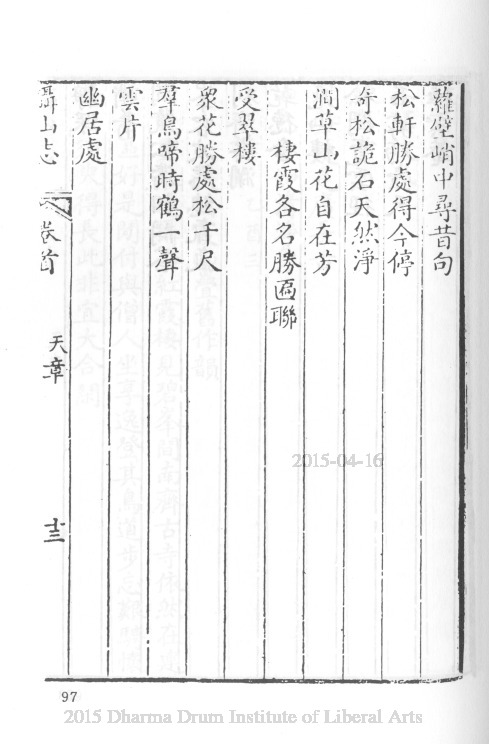 蘿壁峭中尋昔句
松軒勝處得今停
奇松詭石天然淨
澗草山花自在芳
棲霞各名勝匾聯
受翠樓
衆花勝處松千尺
羣鳥啼時鶴一聲
雲片
幽居處
攝山志 卷首 天章 十三
2015-04-16
97
2015 Dharma Drum Institute of Liberal Arts